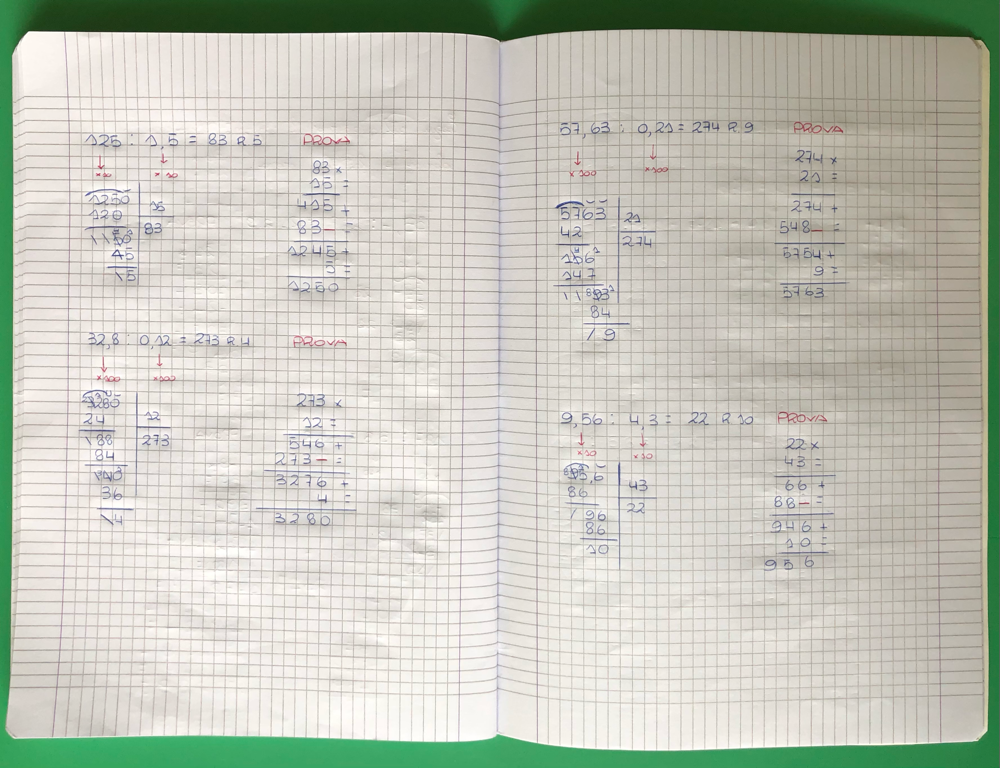 125 : 1,5 = 83 R 5 PROVA
×10 ×10
83 ×
15 =
415 +
83– =
1245 +
5 =
1250
1250 15
120 83
45
5
32,8 : 0,12 = 273 R 4 PROVA
×100 ×100
273 ×
12 =
546 +
273– =
3276 +
4 =
3280
3280 12
24 273
88
84
36
4
57,63 : 0,21 = 274 R 9 PROVA
×100 ×100
274 ×
21 =
274 +
548– =
5754 +
9 =
5763
5763 21
42 274
147
84
9
9,56 : 4,3 = 22 R 10 PROVA
×10 ×10
22 ×
43 =
66 +
88– =
946 +
10 =
956
43
86 22
96
86
10